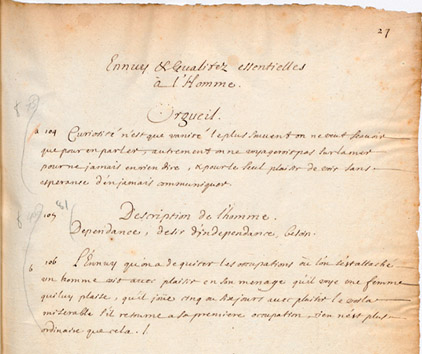 27
Ennuy & Qualitez essentielles
à l'Homme.
Orgueil.
104 Curiosité n'est que vanité le plus souvent on ne veut scavoir
que pour en parler, autrement on ne voyageroit pas sur la mer
pour ne jamais en rien dire, & pour le seul plaisir de voir sans
esperance d'en jamais communiquer.
105 Description de l'homme.
Dependance, desir d'independance, besoin.
106 L'Ennuy qu'on a de quitter les occupations où l'on s'est attaché
un homme vit avec plaisir en son menage qu'il voye une femme
qui luy plaise, qu'il joüe cinq ou six jours avec plaisir le voyla
miserable s'il retourne a sa premiere occupation. Rien n'est plus
ordinaire que cela.